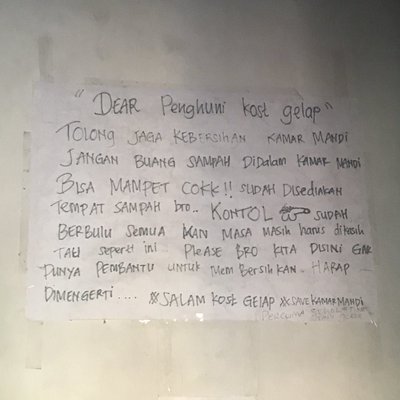 "DEAR Penghuni kost gelap"
TOLONG JAGA KEBERSIHAN KAMAR MANDI
JANGAN BUANG SAMPAH DIDALAM KAMAR MANDI
BISA MAMPET COKK!! SUDAH DISEDIAKAN
TEMPAT SAMPAH bro.. KONTOL SUDAH
BERBULU SEMUA KAN MASA MASIH harus dikasih
TAU seperti ini.. PLEASE BRO KITA DISINI GAK
PUNYA PEMBANTU UNTUK MEMBERSIHKAN. HARAP
DIMENGERTI.... #SALAM KOST GELAP #SAVEKAMARMANDI
PERCUMA